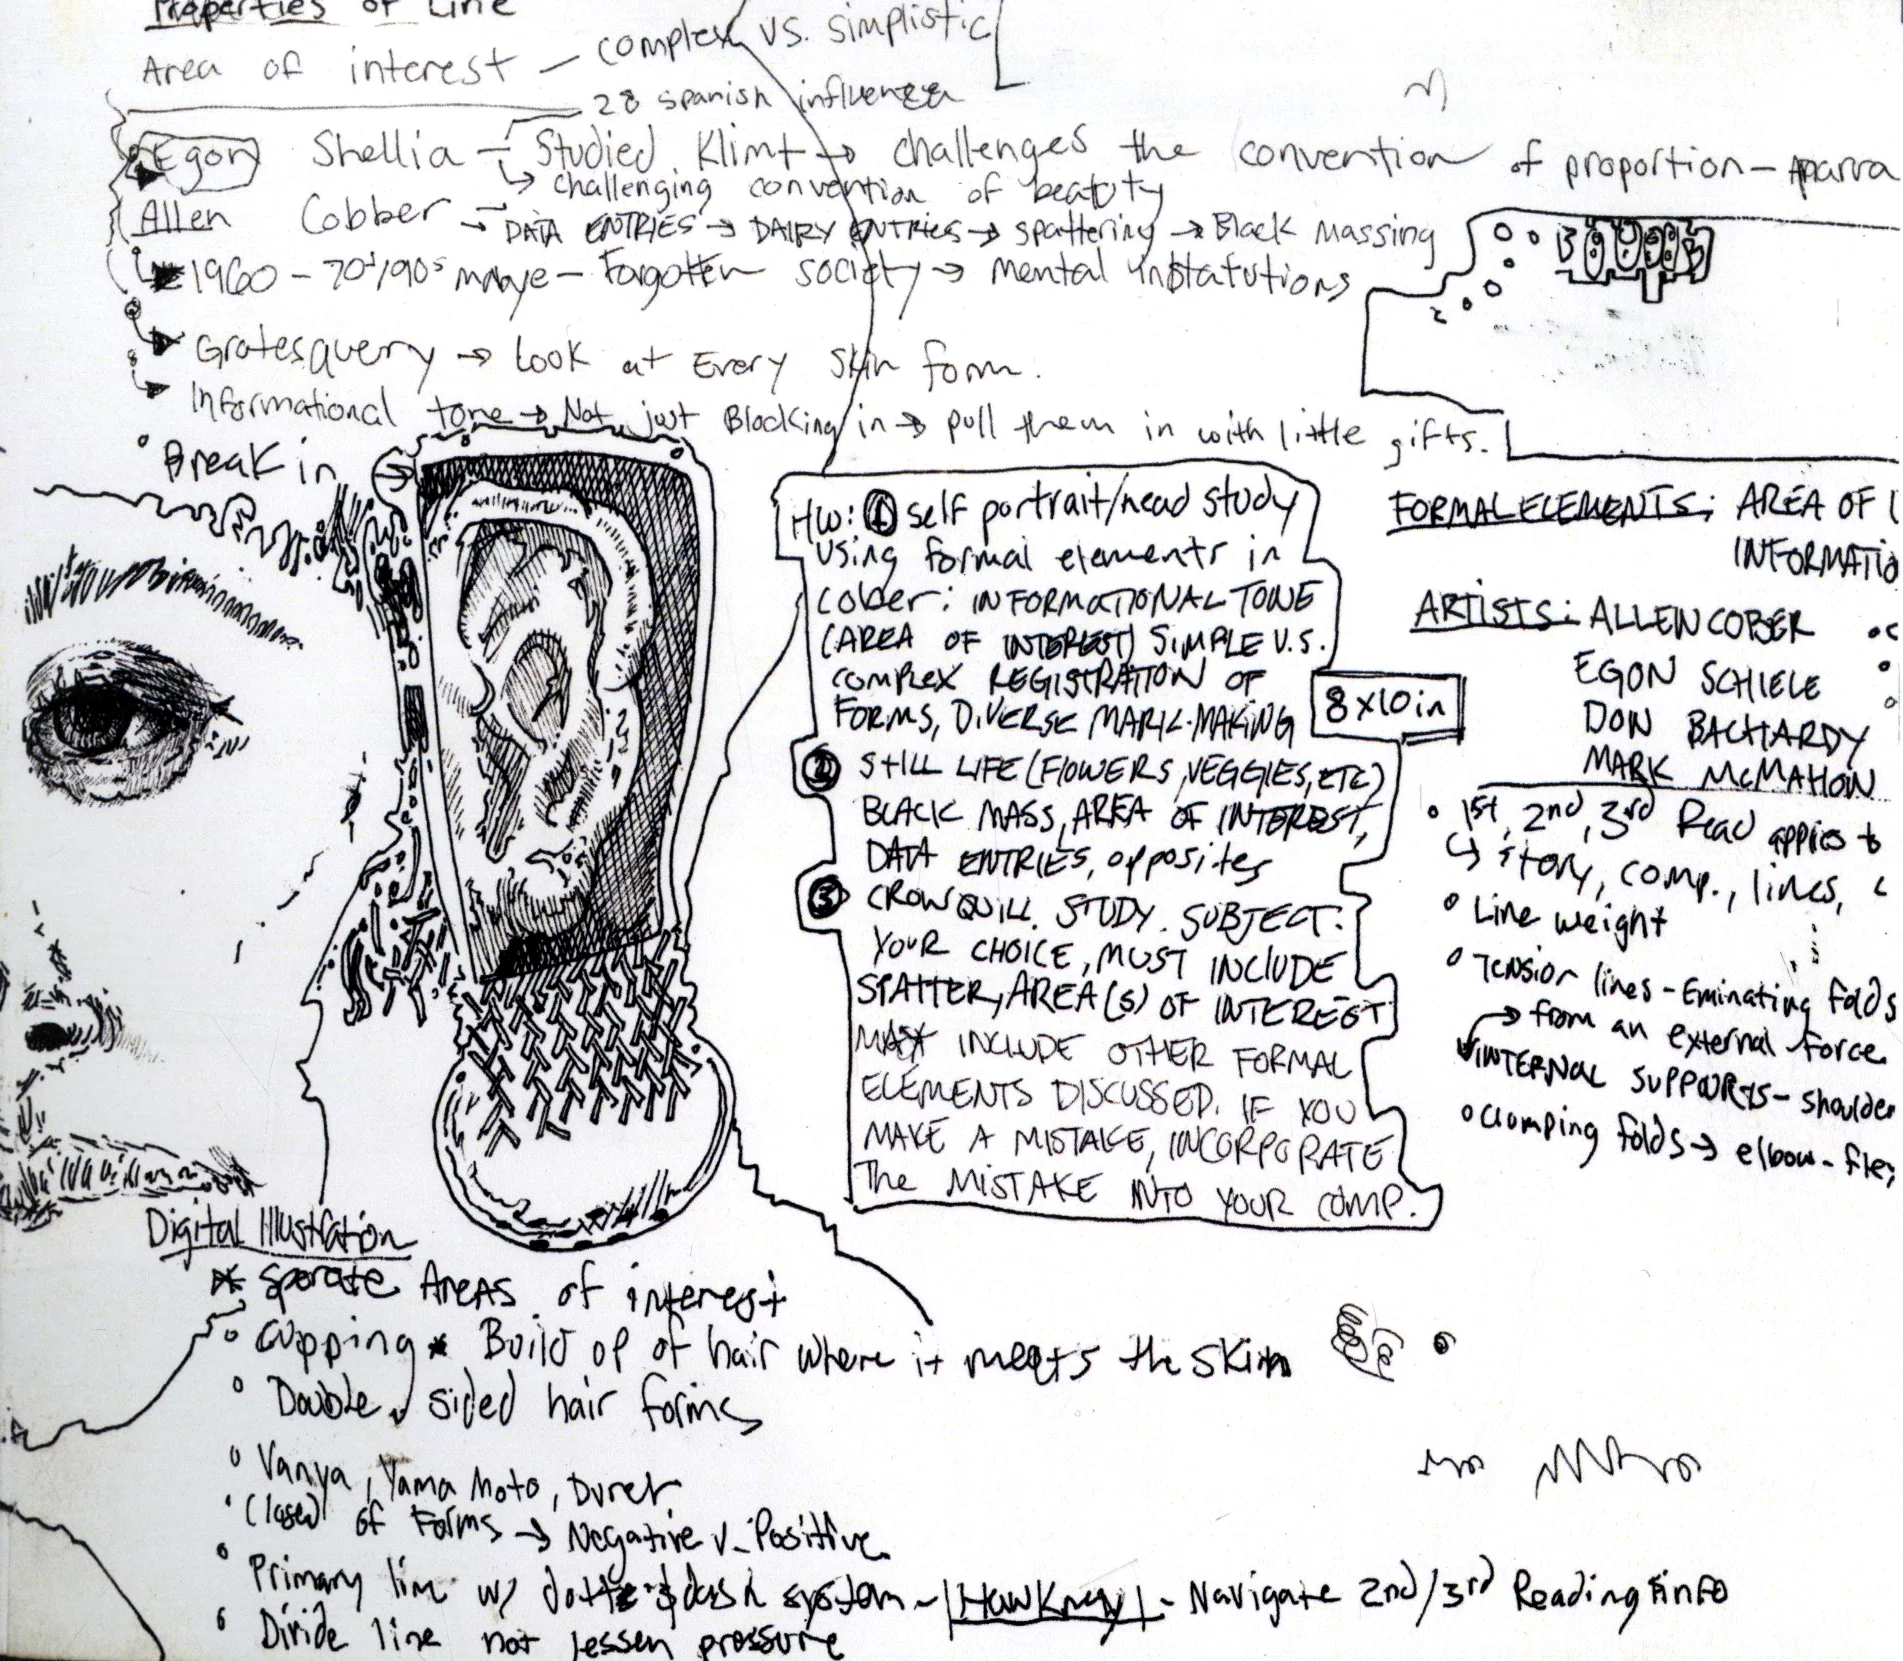 Properties of Line
Area of interest — complex vs. simplistic
28 spanish influence
Egon Shellia — Studied Klimt → challenges the convention of proportion — Aparra
↳ challenging convention of beatuty
Allen Cobber → DATA ENTRIES → DAIRY ENTRIES → spattering → Black Massing
1960 - 70s/90s - Forgotten society → mental instatutions
Gratesquery → Look at Every skin form.
Informational tone → Not just Blocking in → pull them in with little gifts.
Break in
HW: ① self portrait/head study
using formal elements in
Cober: INFORMATIONAL TONE
(AREA OF INTEREST) SIMPLE V.S.
COMPLEX REGISTRATION OF
FORMS, DIVERSE MARK-MAKING
8x10in
② STILL LIFE (FLOWERS, VEGGIES, ETC)
BLACK MASS, AREA OF INTEREST,
DATA ENTRIES, opposites
③ CROWQUILL STUDY. SUBJECT:
YOUR CHOICE, MUST INCLUDE
SPATTER, AREA(S) OF INTEREST
MUST INCLUDE OTHER FORMAL
ELEMENTS DISCUSSED. IF YOU
MAKE A MISTAKE, INCORPORATE
The MISTAKE INTO YOUR COMP.
FORMAL ELEMENTS: AREA OF I
INFORMATIO
ARTISTS: ALLEN COBER
EGON SCHIELE
DON BACHARDY
MARK McMAHON
1st, 2nd, 3rd Read applies to
↳ story, comp., lines,
Line weight
Tension lines - Eminating folds
→ from an external force
INTERNAL SUPPORTS - shoulder
Clomping folds → elbow - flex
Digital Illustration
* Sperate Areas of interest
Cupping * Build op of hair where it meets the skin
Double sided hair forms
Vanya, Yama Moto, Durer
(losed) of Forms → Negative v. Positive
Primary line w/ dots & dash system - |Hawkney| - Navigate 2nd/3rd Reading info
Divide line not lessen pressure